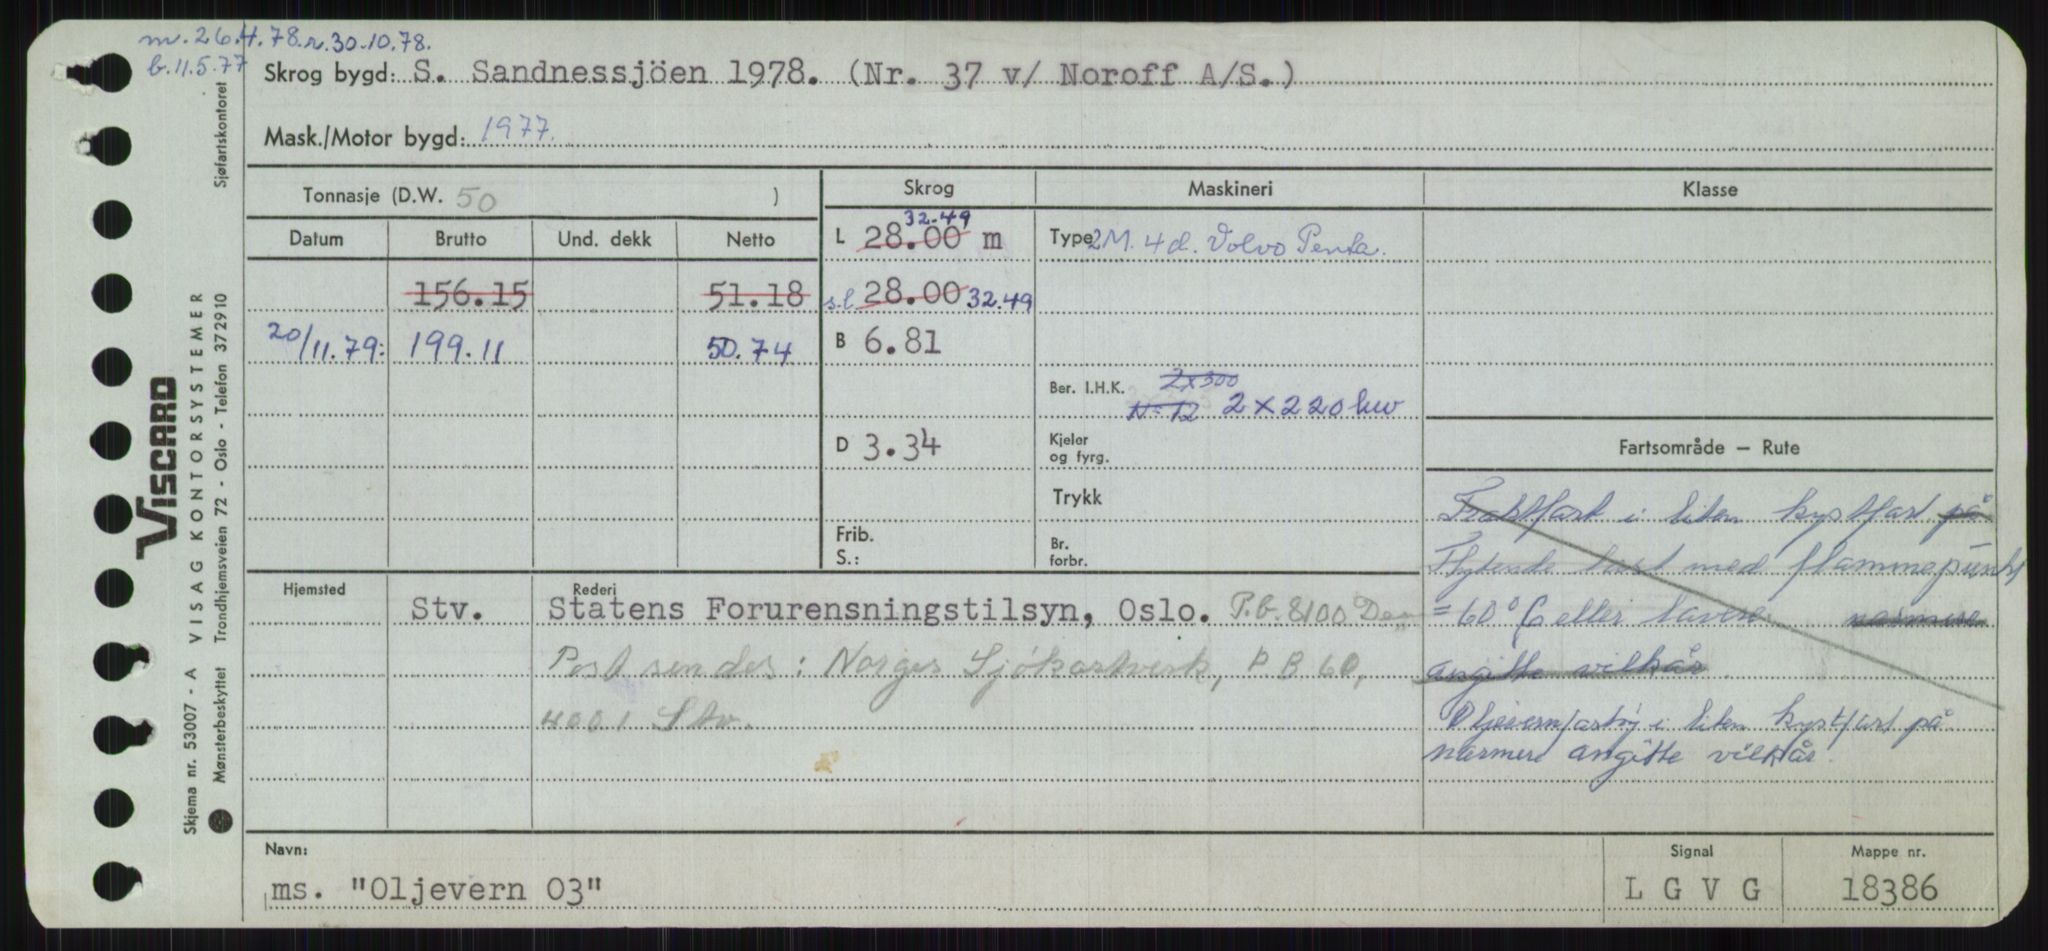 m. 26.4.78. r. 30.10.78.
b. 11.5.77
Skrog bygd: S. Sandnessjöen 1978. (Nr. 37 v/ Noroff A/S.)
Mask./Motor bygd: 1977.
Tonnasje (D.W. 50 )
Skrog
Maskineri
Klasse
Datum Brutto Und. dekk Netto
L 28.00 m 32.49
Type 2 M. 4 d. Volvo Penta.
156.15 51.18
s.l 28.00 32.49
20/11.79: 199.11 50.74
B 6.81
Ber. I.H.K. 2x300
N=12 2 x 220 kw
D 3.34
Kjeler
og fyrg.
Trykk
Frib.
S.:
Br.
forbr.
Fartsområde — Rute
Fraktfart i liten kystfart på
Flytende last med flammepunkt
= 60° C eller lavere nærmere
angitte vilkår.
Oljevernfartøy i liten kystfart på
nærmere angitte vilkår.
Hjemsted
Rederi
Stv. Statens Forurensningstilsyn, Oslo. P.b. 8100 Dep
Post sendes: Norges Sjökartverk, P B 60,
4001 Stv.
Navn:
ms. "Oljevern 03"
Signal
L G V G
Mappe nr.
18386
Sjøfartskontoret
VISCARD
Skjema nr. 53007 - A VISAG KONTORSYSTEMER
Mønsterbeskyttet Trondhjemsveien 72 - Oslo - Telefon 372910